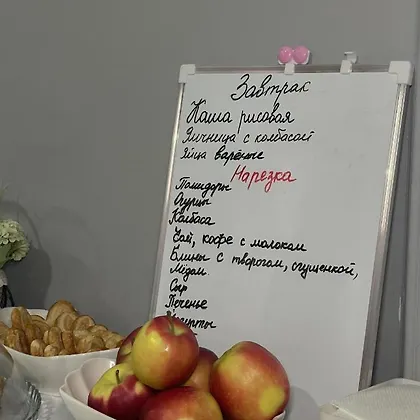 Завтрак
Каша рисовая
Яичница с колбасой
Яйца варёные
Нарезка
Помидоры
Огурцы
Колбаса
Чай, кофе с молоком
Блины с творогом, сгущенкой,
Мёдом.
Сыр
Печенье